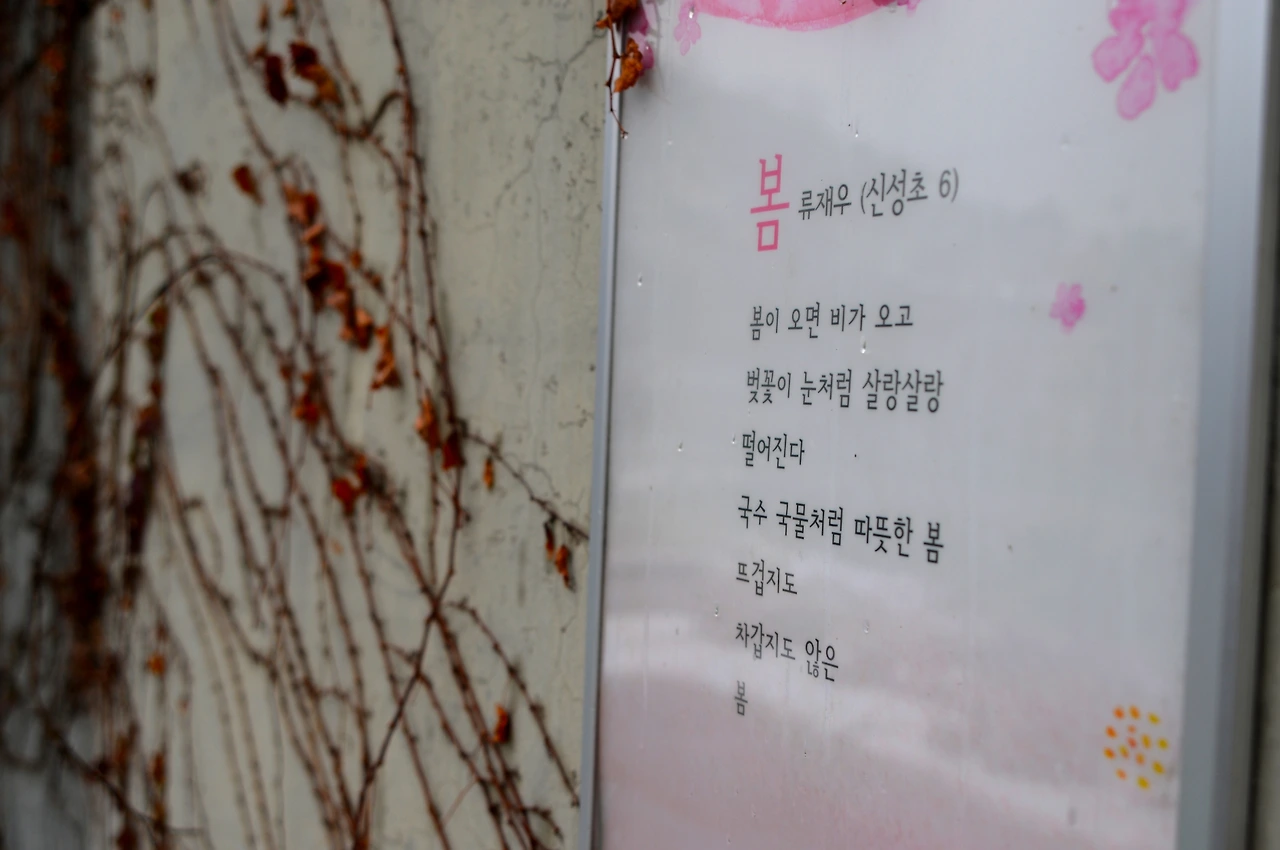 봄 류재우 (신성초 6)
봄이 오면 비가 오고
벚꽃이 눈처럼 살랑살랑
떨어진다
국수 국물처럼 따뜻한 봄
뜨겁지도
차갑지도 않은
봄